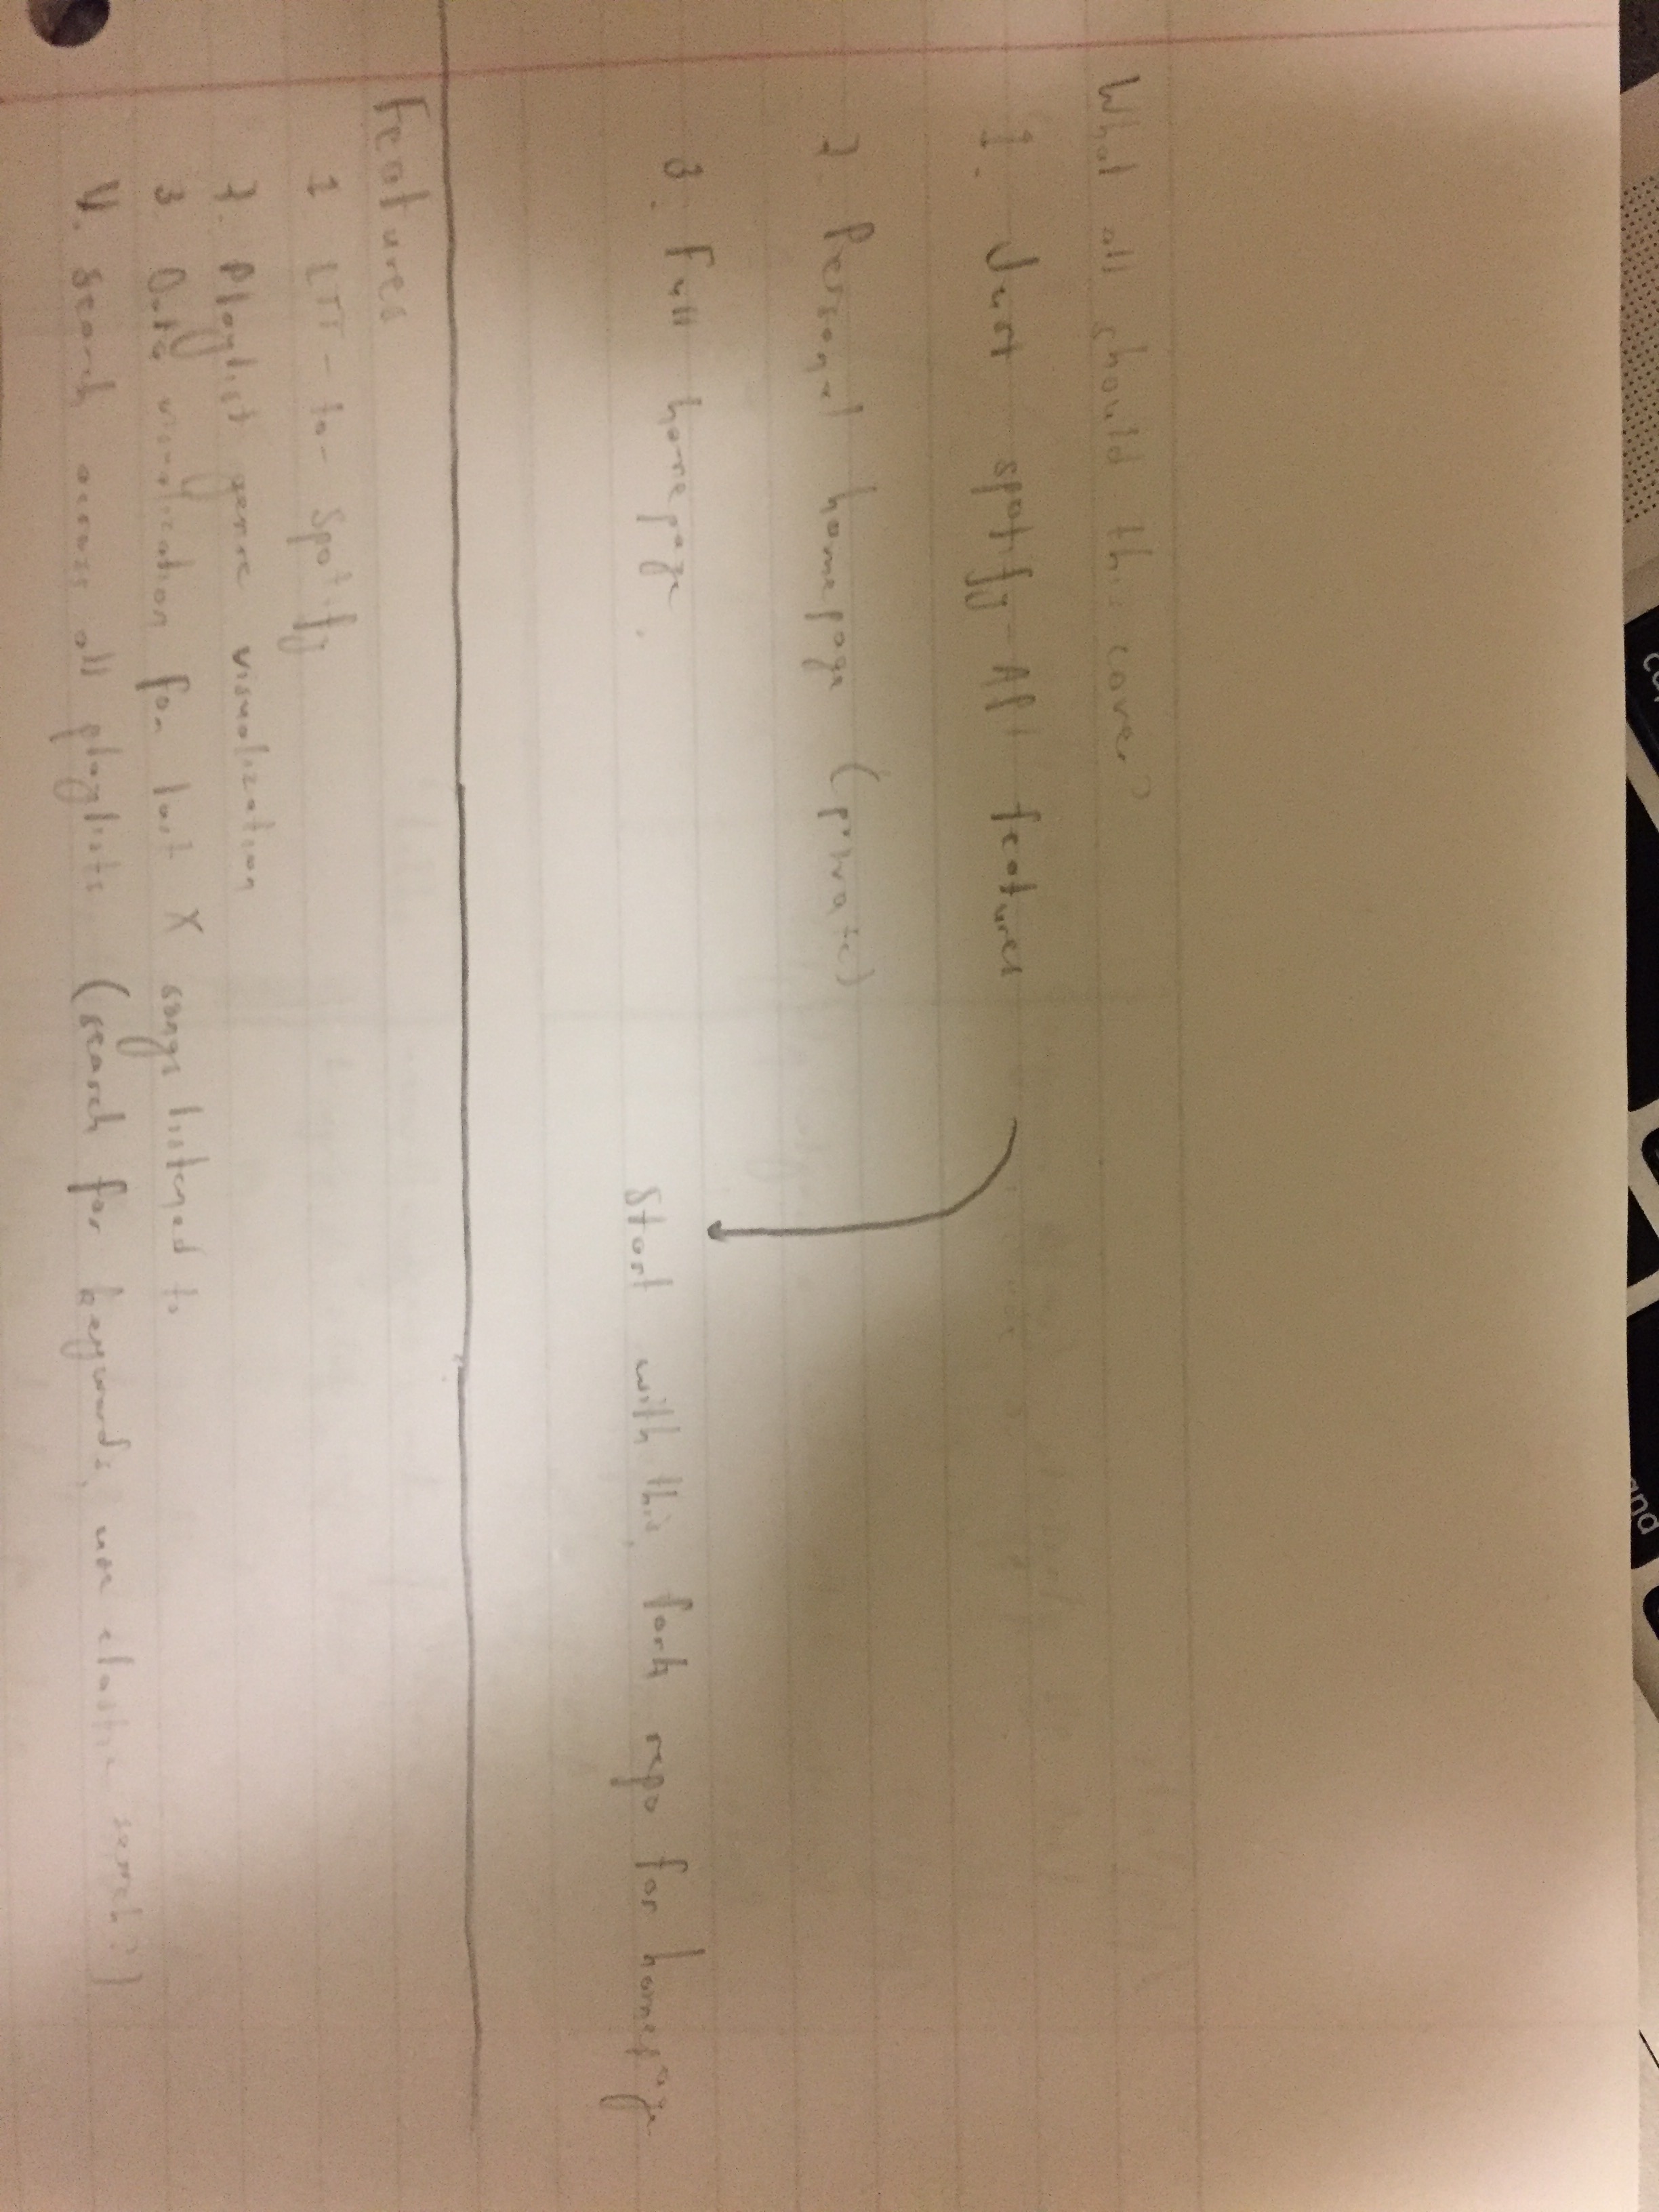 What all should this cover?
1. Just spotify-API features
2. Personal homepage (private)
3. Full homepage.
Start with this, fork repo for homepage
Features
1 LTT - for Spotify
2. Playlist genre visualization
3 Data visualization for last X songs listened to
4. Search across all playlists (search for keywords, use elastic search?)